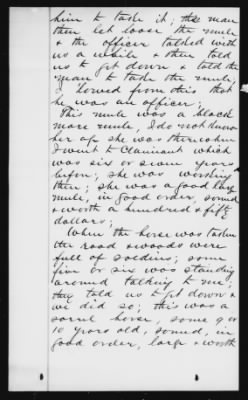 him to take it; the man
then let loose the mule
& the officer talked with
us a while & then told
us to get down & told the
man to take the mule,
I 'lowed from this that
he was an officer;
This mule was a black
mare mule, I do not know
her age she was there when
I went to Claimant which
was six or seven years
before; she was working
then; she was a good large
mule, in good order, sound
& worth a hundred & fifty
dollars;
When the horse was taken
the road & woods were
full of soldiers; some
five or six was standing
around talking to me;
they told us to get down &
we did so; this was a
sorrel horse, some 9 or
10 years old, sound, in
good order, large & worth